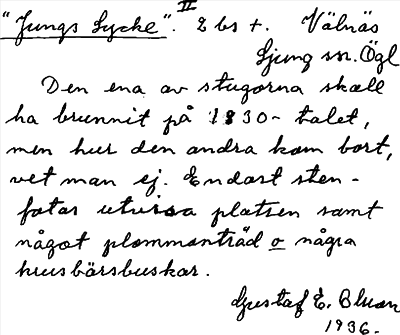 "Jungs Lycke". II 2 bs +. Välnäs
Ljung sn. Ögl
Den ena av stugorna skall
ha brunnit på 1830-talet,
men hur den andra kom bort,
vet man ej. Endast sten-
fotar utvisa platsen samt
något plommonträd o några
krusbärsbuskar.
Gustaf E. Bluan
1936.